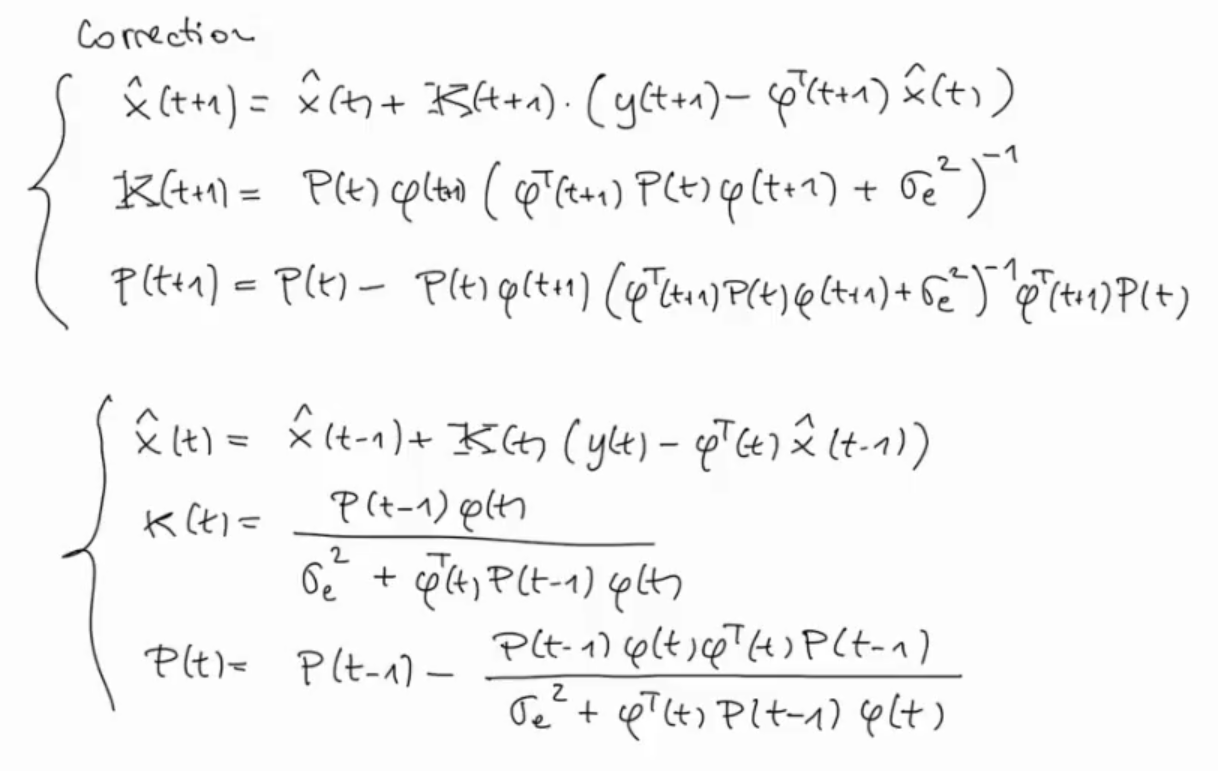 Correction
x̂(t+1) = x̂(t) + K(t+1)·(y(t+1) − φᵀ(t+1) x̂(t))
K(t+1) = P(t) φ(t+1) (φᵀ(t+1) P(t) φ(t+1) + σₑ²)⁻¹
P(t+1) = P(t) − P(t) φ(t+1) (φᵀ(t+1) P(t) φ(t+1) + σₑ²)⁻¹ φᵀ(t+1) P(t)
x̂(t) = x̂(t-1) + K(t) (y(t) − φᵀ(t) x̂(t-1))
K(t) = P(t-1) φ(t) / σₑ² + φᵀ(t) P(t-1) φ(t)
P(t) = P(t-1) − P(t-1) φ(t) φᵀ(t) P(t-1) / σₑ² + φᵀ(t) P(t-1) φ(t)